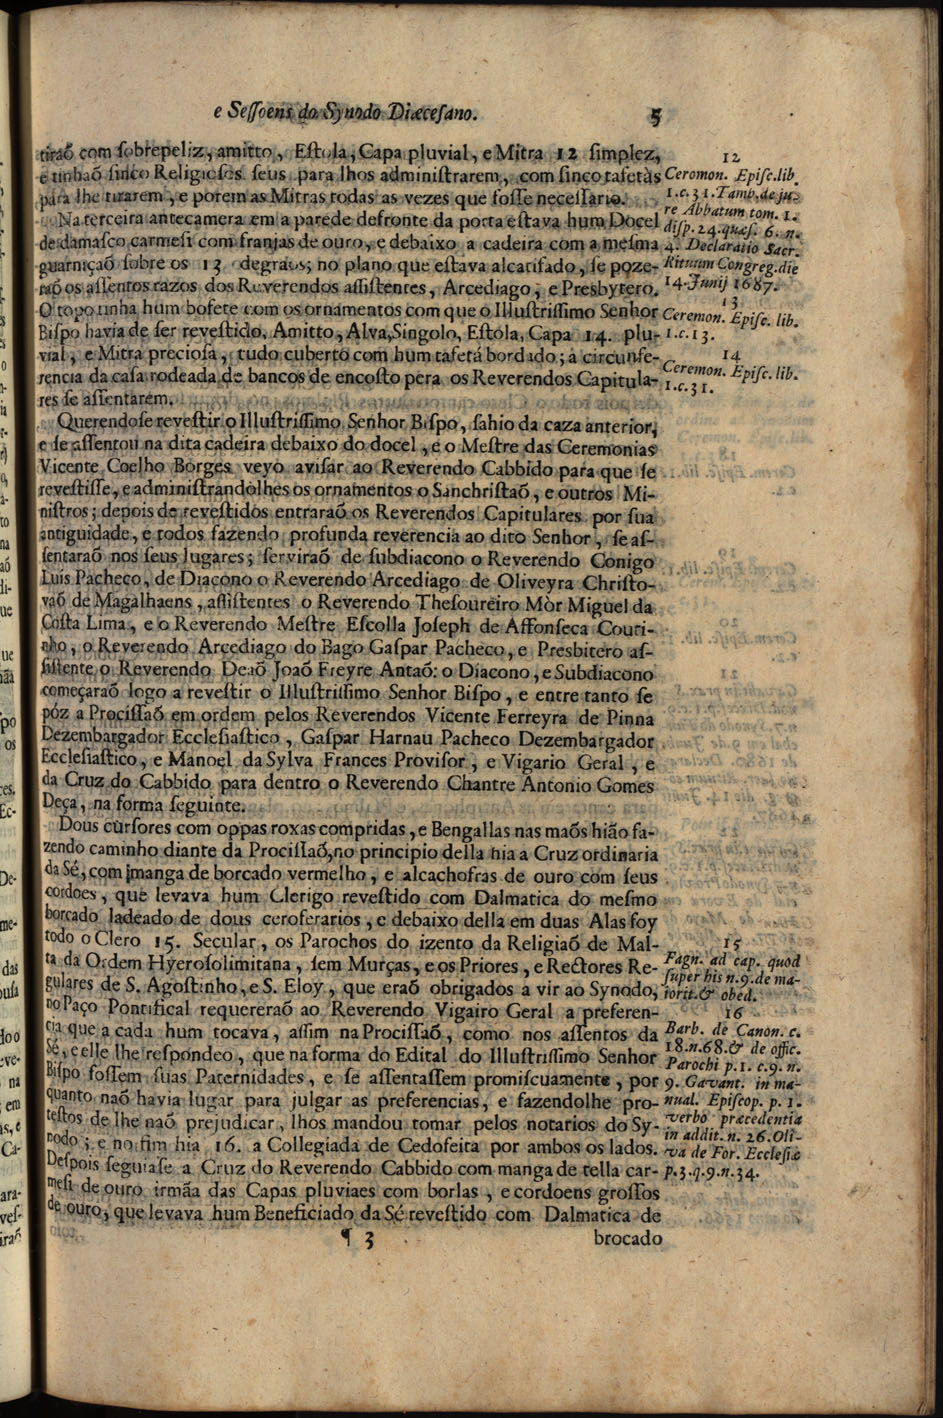 e Seſſoens do Synodo Diæceſano. 5
tiraõ com ſobrepeliz, amitto, Eſtola, Capa pluvial, e Mitra 12 ſimplez,
e tinhaõ ſinco Religioſos ſeus para lhos adminiſtrarem, com ſinco tafetàs
para lhe tirarem, e porem as Mitras todas as vezes que foſſe neceſſario.
Na terceira antecamera em a parede defronte da porta eſtava hum Docel
de damaſco carmeſi com franjas de ouro, e debaixo a cadeira com a meſma
guarniçaõ ſobre os 13 degraos; no plano que eſtava alcatifado, ſe poze-
raõ os aſſentos razos dos Reverendos aſſiſtentes, Arcediago, e Presbytero.
O topo tinha hum bofete com os ornamentos com que o Illuſtriſſimo Senhor
Biſpo havia de ſer reveſtido, Amitto, Alva, Singolo, Eſtola, Capa 14. plu-
vial, e Mitra precioſa, tudo cuberto com hum tafetá bordado; a circunfe-
rencia da caſa rodeada de bancos de encoſto pera os Reverendos Capitula-
res ſe aſſentarem.
Querendoſe reveſtir o Illuſtriſſimo Senhor Biſpo, ſahio da caza anterior,
e ſe aſſentou na dita cadeira debaixo do docel, e o Meſtre das Ceremonias
Vicente Coelho Borges veyo aviſar ao Reverendo Cabbido para que ſe
reveſtiſſe, e adminiſtrandolhes os ornamentos o Sanchriſtaõ, e outros Mi-
niſtros; depois de reveſtidos entraraõ os Reverendos Capitulares por ſua
antiguidade, e todos fazendo profunda reverencia ao dito Senhor, ſe aſ-
ſentaraõ nos ſeus lugares; ſerviraõ de ſubdiacono o Reverendo Conigo
Luis Pacheco, de Diacono o Reverendo Arcediago de Oliveyra Chriſto-
vaõ de Magalhaens, aſſiſtentes o Reverendo Theſoureiro Mòr Miguel da
Coſta Lima, e o Reverendo Meſtre Eſcolla Joſeph de Affonſeca Couti-
nho, o Reverendo Arcediago do Bago Gaſpar Pacheco, e Presbitero aſ-
ſiſtente o Reverendo Deaõ Joaõ Freyre Antaõ: o Diacono, e Subdiacono
começaraõ logo a reveſtir o Illuſtriſſimo Senhor Biſpo, e entre tanto ſe
pòz a Prociſſaõ em ordem pelos Reverendos Vicente Ferreyra de Pinna
Dezembargador Eccleſiaſtico, Gaſpar Harnau Pacheco Dezembargador
Eccleſiaſtico, e Manoel da Sylva Frances Proviſor, e Vigario Geral, e
da Cruz do Cabbido para dentro o Reverendo Chantre Antonio Gomes
Deça, na forma ſeguinte.
Dous curſores com oppas roxas compridas, e Bengallas nas maõs hiaõ fa-
zendo caminho diante da Prociſſaõ, no principio della hia a Cruz ordinaria
da Sé, com manga de borcado vermelho, e alcachofras de ouro com ſeus
cordoes, que levava hum Clerigo reveſtido com Dalmatica do meſmo
borcado ladeado de dous ceroferarios, e debaixo della em duas Alas foy
todo o Clero 15. Secular, os Parochos do izento da Religiaõ de Mal-
ta da Ordem Hyeroſolimitana, ſem Murças, e os Priores, e Rectores Re-
gulares de S. Agoſtinho, e S. Eloy, que eraõ obrigados a vir ao Synodo,
no Paço Pontifical requereraõ ao Reverendo Vigairo Geral a preferen-
cia que a cada hum tocava, aſſim na Prociſſaõ, como nos aſſentos da
Sé, e elle lhe reſpondeo, que na forma do Edital do Illuſtriſſimo Senhor
Biſpo foſſem ſuas Paternidades, e ſe aſſentaſſem promiſcuamente, por
quanto naõ havia lugar para julgar as preferencias, e fazendolhe pro-
teſtos de lhe naõ prejudicar, lhos mandou tomar pelos notarios do Sy-
nodo; e no fim hia 16. a Collegiada de Cedofeita por ambos os lados.
Deſpois ſeguiaſe a Cruz do Reverendo Cabbido com manga de tella car-
meſi de ouro irmãa das Capas pluviaes com borlas, e cordoens groſſos
de ouro, que levava hum Beneficiado da Sé reveſtido com Dalmatica de
¶ 3 brocado
12
Ceromon. Epiſc. lib.
1. c. 31. Tamb. de ju-
re Abbatum tom. 1.
diſp. 24. quæſ. 6. n.
4. Declaratio Sacr.
Rituum Congreg. die
14. Junij 1687.
13
Ceremon. Epiſc. lib.
1. c. 13.
14
Ceremon. Epiſc. lib.
1. c. 31.
15
Fagn. ad cap. quod
ſuper his n. 9. de ma-
iorit. & obed.
16
Barb. de Canon. c.
18. n. 68. & de offic.
Parochi p. 1. c. 9. n.
9. Gavant. in ma-
nual. Epiſcop. p. 1.
verbo præcedentia
in addit. n. 26. Oli-
va de For. Eccleſiæ
p. 3. q. 9. n. 34.